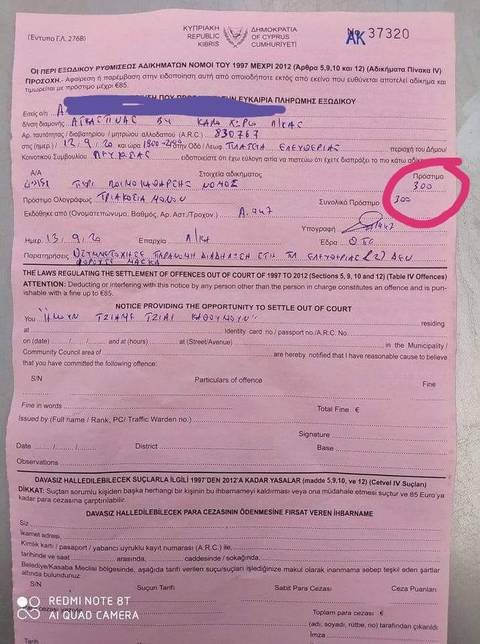 (Έντυπο Γ.Λ. 276Β)
ΚΥΠΡΙΑΚΗ ΔΗΜΟΚΡΑΤΙΑ
REPUBLIC OF CYPRUS
KIBRIS CUMHURIYETI
ΑΚ 37320
ΟΙ ΠΕΡΙ ΕΞΩΔΙΚΟΥ ΡΥΘΜΙΣΕΩΣ ΑΔΙΚΗΜΑΤΩΝ ΝΟΜΟΙ ΤΟΥ 1997 ΜΕΧΡΙ 2012 (Άρθρα 5,9,10 και 12) (Αδικήματα Πίνακα IV)
ΠΡΟΣΟΧΗ.- Αφαίρεση ή παρέμβαση στην ειδοποίηση αυτή από οποιοδήποτε εκτός από εκείνα που ευθύνεται αποτελεί αδίκημα και
τιμωρείται με πρόστιμο μέχρι €85.
ΤΗΝ ΕΥΚΑΙΡΙΑ ΠΛΗΡΩΜΗΣ ΕΞΩΔΙΚΟΥ
Εσείς ο/η
δ/νση διαμονής
Αρ. ταυτότητας / διαβατηρίου / μητρώου αλλοδαπού (A.R.C.) 830767
στις (ημερ.) 12.9.20 και ώρα στην Οδό / Λεωφ. ΠΛΑΤΕΙΑ ΕΛΕΥΘΕΡΙΑΣ περιοχή του Δήμου/
Κοινοτικού Συμβουλίου ειδοποιείστε ότι έχω εύλογη αιτία να πιστεύω ότι έχετε διαπράξει το πιο κάτω αδίκημα
Α/Α Στοιχεία αδικήματος Πρόστιμο
ΠΕΡΙ ΛΟΙΜΟΚΑΘΑΡΣΗΣ ΝΟΜΟΣ 300
Πρόστιμο Ολογράφως ΤΡΙΑΚΟΣΙΑ ΜΟΝΟΝ Συνολικό Πρόστιμο 300
Εκδόθηκε από (Ονοματεπώνυμο, Βαθμός, Αρ. Αστ./Τροχον.) Α.947
Υπογραφή
Ημερ. 13.9.20 Επαρχία Λ/ΚΑ Έδρα
Παρατηρήσεις ΠΑΡΑΝΟΜΗ ΔΙΑΔΗΛΩΣΗ ΣΤΗ ΠΛ ΕΛΕΥΘΕΡΙΑΣ (2) ΔΕΝ
ΦΟΡΟΥΣΕ ΜΑΣΚΑ
THE LAWS REGULATING THE SETTLEMENT OF OFFENCES OUT OF COURT OF 1997 TO 2012 (Sections 5, 9, 10 and 12) (Table IV Offences)
ATTENTION: Deducting or interfering with this notice by any other person than the person in charge constitutes an offence and is pun-
ishable with a fine up to €85.
NOTICE PROVIDING THE OPPORTUNITY TO SETTLE OUT OF COURT
You residing
at Identity card no / passport no./A.R.C. No.
on (date) ..../..../.... and at (hours) at (Street/Avenue) in the Municipality /
Community Council area of are hereby notified that I have reasonable cause to believe
that you have committed the following offence:
S/N Particulars of offence Fine
Fine in words Total Fine €
Issued by (Full name / Rank, PC/ Traffic Warden no.)
Signature
Date ..../..../.... District Base
Observations
DAVASIZ HALLEDİLEBİLECEK SUÇLARLA İLGİLİ 1997'DEN 2012'A KADAR YASALAR (madde 5,9,10, ve 12) (Cetvel IV Suçları)
DİKKAT: Suçtan sorumlu kişiden başka herhangi bir kişinin bu ihbarnameyi kaldırması veya ona müdahale etmesi suçtur ve 85 Euro'ya
kadar para cezasına çarptırılabilir.
DAVASIZ HALLEDİLEBİLECEK PARA CEZASININ ÖDENMESİNE FIRSAT VEREN İHBARNAME
Siz
ikamet adresi,
Kimlik kartı / pasaport / yabancı uyruklu kayıt numarası (A.R.C.) ile,
tarihinde ve saat arasında, caddesinde / sokağında,
Belediye/Kasaba Meclisi bölgesinde, aşağıda tarifi verilen suçu/suçları işlediğinize makul olarak inanmama sebep teşkil eden şartlar
altında bulundunuz:
S/N Suçun Tarifi Sabit Para Cezası Ceza Puanları
Toplam para cezası €
(adı, soyadı, rütbe, no) tarafından
İmza
REDMI NOTE 8T
AI QUAD CAMERA